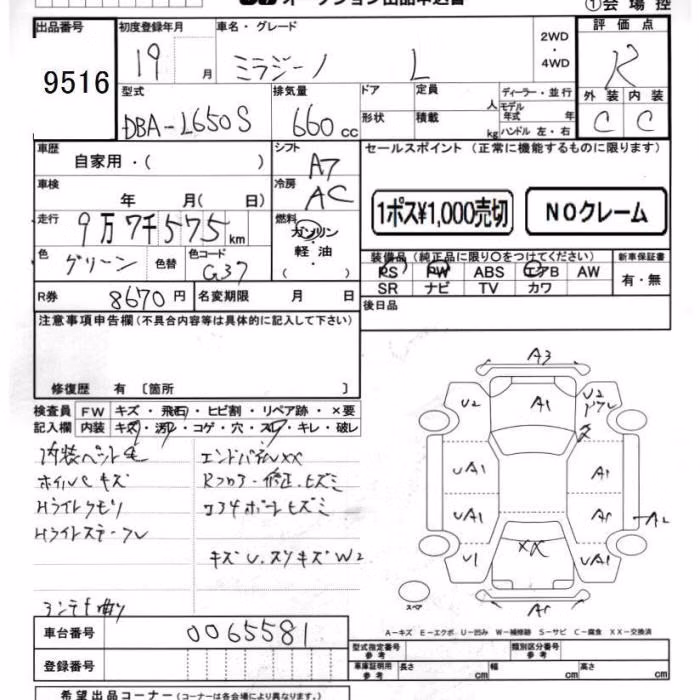 オークション出品申込書
①会場控
出品番号
初度登録年月
車名・グレード
2WD
・
4WD
評価点
9516
19
月
ミラジーノ
L
R
型式
排気量
ドア
定員
人
ディーラー・並行
外装
内装
DBA-L650S
660
cc
形状
積載
kg
モデル年式
年
ハンドル 左・右
C
C
車歴
自家用・(
)
シフト
A7
セールスポイント (正常に機能するものに限ります)
車検
年
月(
日)
冷房
AC
1ポス¥1,000売切
NOクレーム
走行
9万7千575
km
燃料
ガソリン
・
軽油
(
)
色
グリーン
色替
色コード
G37
装備品 (純正品に限り○をつけてください)
新車保証書
PS
PW
ABS
エアB
AW
有・無
SR
ナビ
TV
カワ
R券
8670
円
名変期限
月
日
後日品
注意事項申告欄 (不具合内容等は具体的に記入して下さい)
修復歴
有
〔箇所
〕
検査員
記入欄
FW
キズ・飛石・ヒビ割・リペア跡・×要
内装
キズ・汚レ・コゲ・穴・スレ・キレ・破レ
内装ペット毛
エンドパネルXX
ホイルCキズ
Rフロア・修正、ヒズミ
Hライトクモリ
コアサポートヒズミ
キズU.スリキズW2
A3
U2
A1
U2
UA1
A1
UA1
A1
A2
U1
XX
UA1
A1
スペア
A-キズ E-エクボ U-凹み W-補修跡 S-サビ C-腐食 XX-交換済
車台番号
0065581
登録番号
型式指定番号
参考
類別区分番号
参考
車庫証明用
参考
長さ
cm
幅
cm
高さ
cm
希望出品コーナー (コーナーは各会場により異なります。)